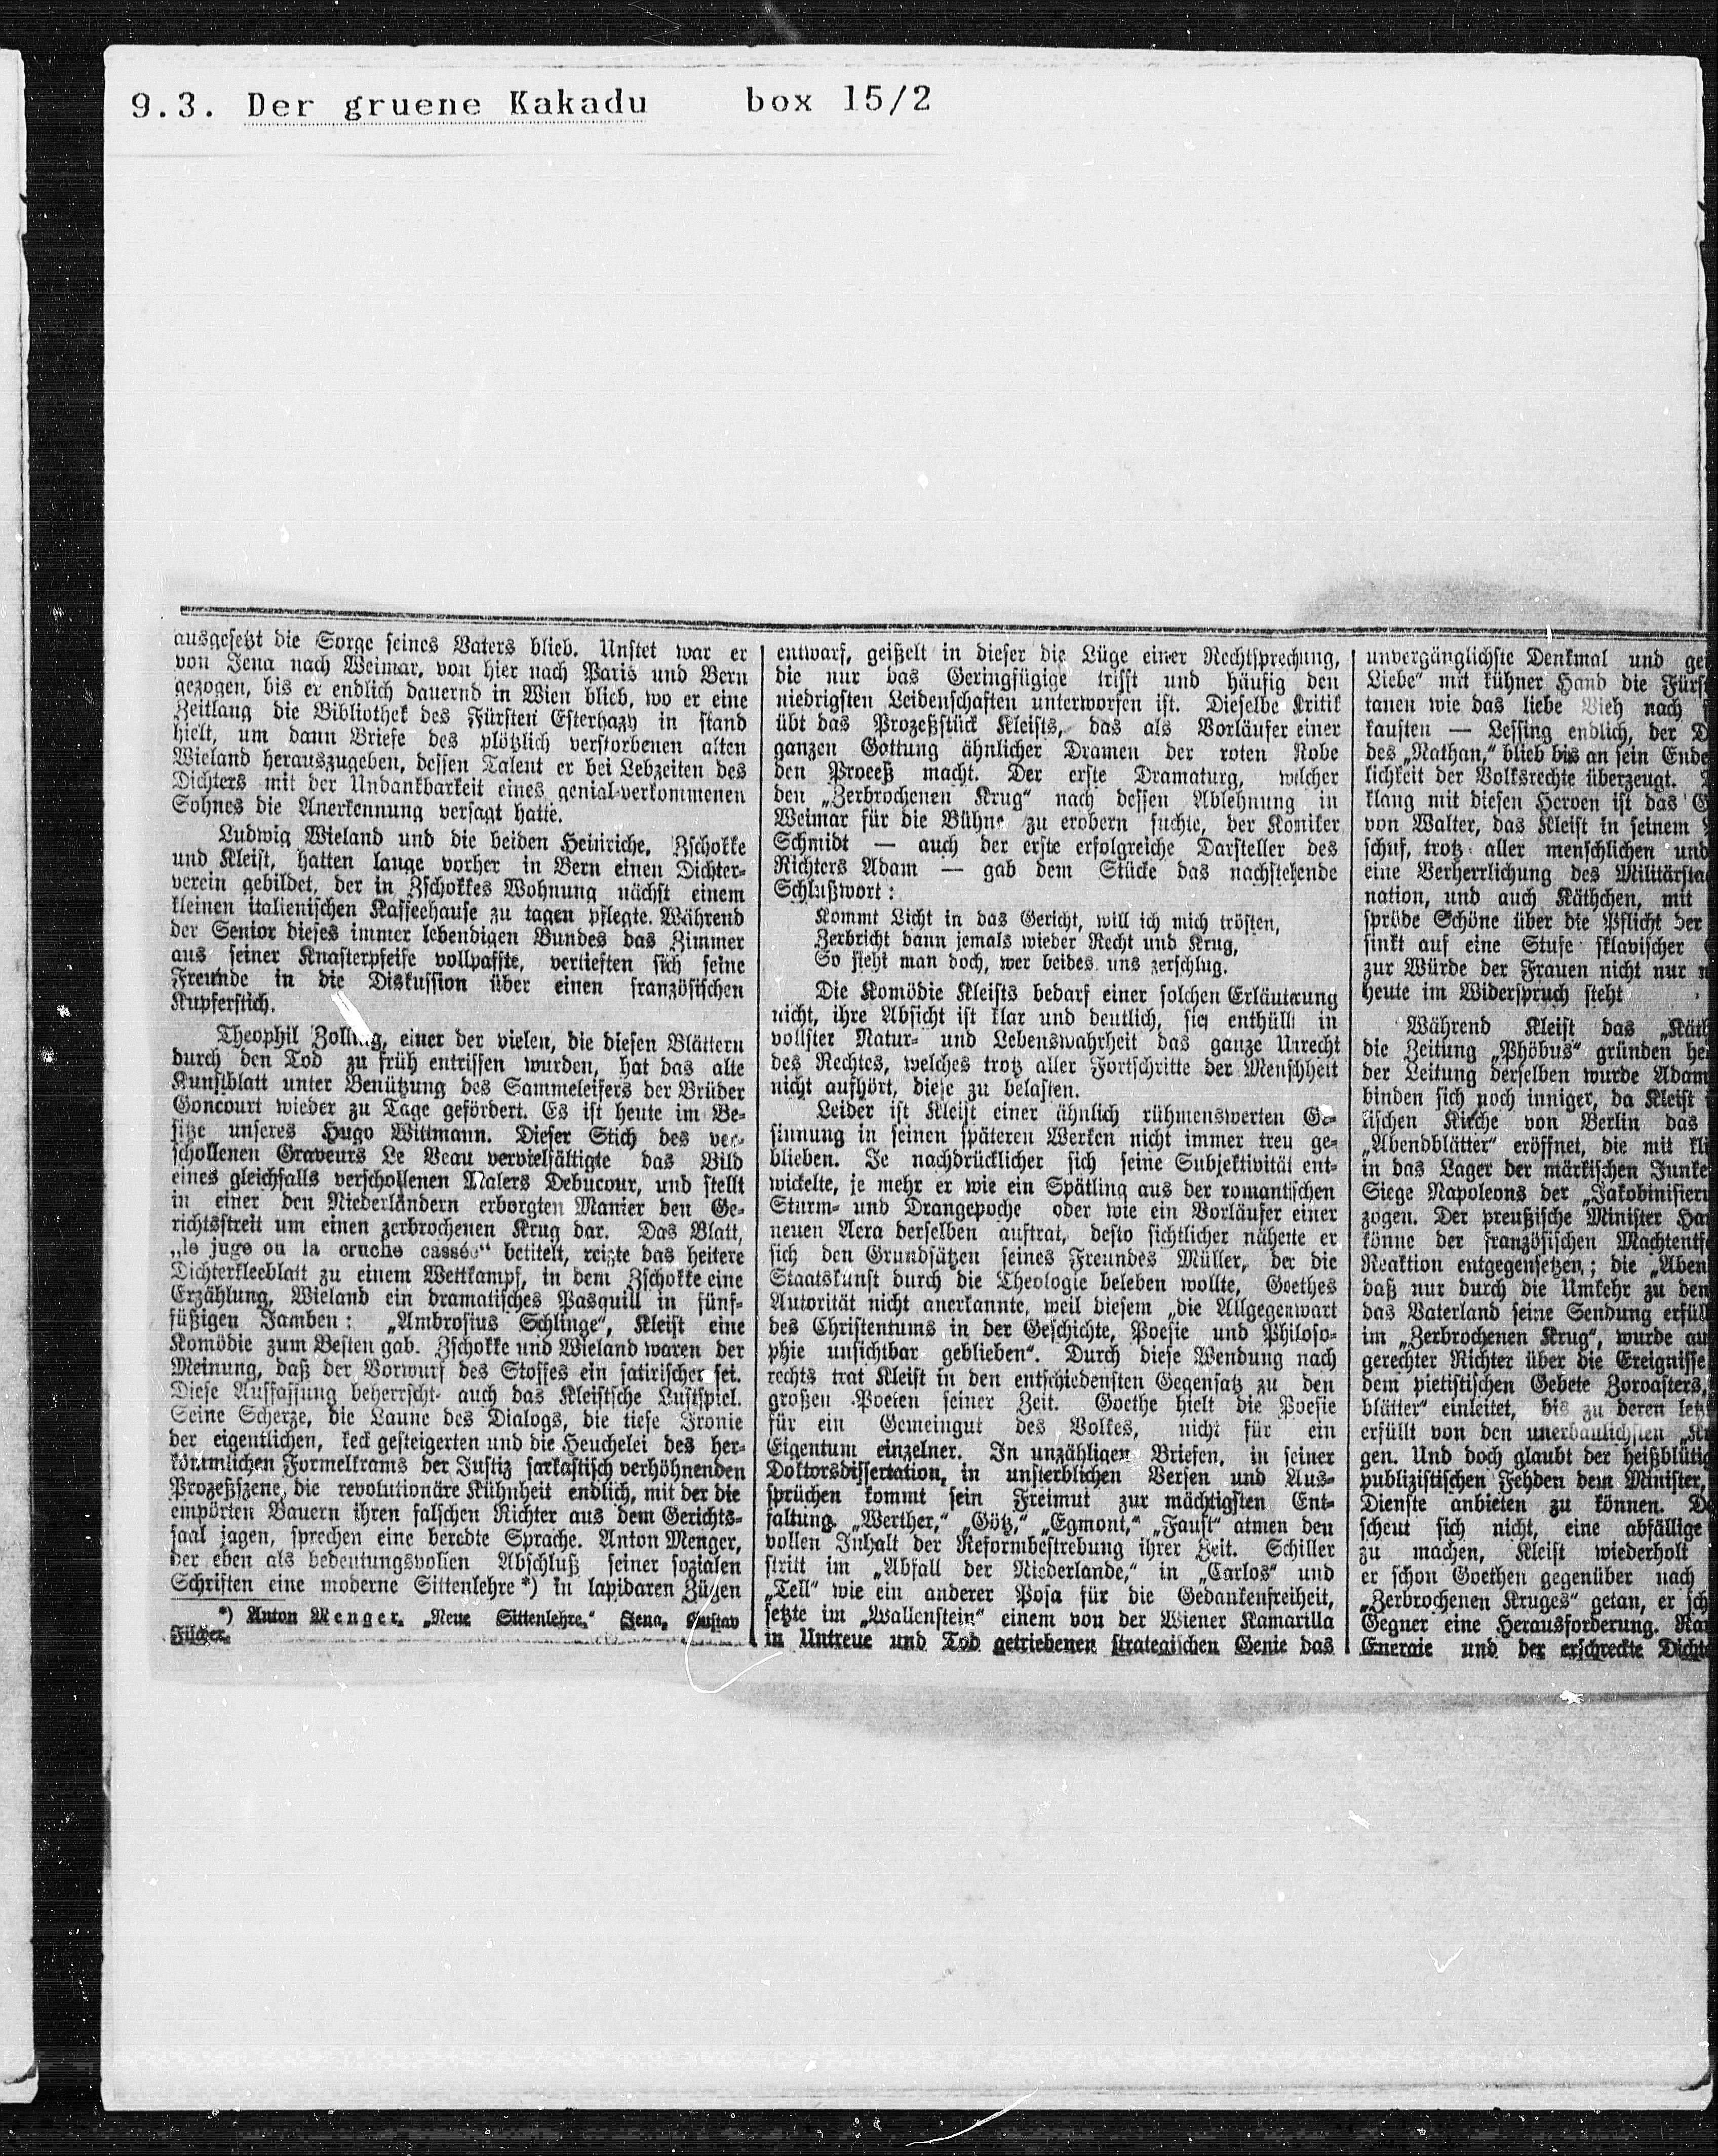 9.3. Der gruene Kakadu box 15/2
ausgesetzt die Sorge seines Vaters blieb. Unstet war er
von Jena nach Weimar, von hier nach Paris und Bern
gezogen, bis er endlich dauernd in Wien blieb, wo er eine
Zeitlang die Bibliothek des Fürsten Esterhazy in stand
hielt, um dann Briefe des plötzlich verstorbenen alten
Wieland herauszugeben, dessen Talent er bei Lebzeiten des
Dichters mit der Undankbarkeit eines genial-verkommenen
Sohnes die Anerkennung versagt hatte.
Ludwig Wieland und die beiden Heinriche, Zschokke
und Kleist, hatten lange vorher in Bern einen Dichter-
verein gebildet, der in Zschokkes Wohnung nächst einem
kleinen italienischen Kaffeehause zu tagen pflegte. Während
der Senior dieses immer lebendigen Bundes das Zimmer
aus seiner Knasterpfeife vollpaffte, vertieften sich seine
Freunde in die Diskussion über einen französischen
Kupferstich.
Theophil Zolling, einer der vielen, die diesen Blättern
durch den Tod zu früh entrissen wurden, hat das alte
Kunstblatt unter Benützung des Sammeleifers der Brüder
Goncourt wieder zu Tage gefördert. Es ist heute im Be-
sitze unseres Hugo Wittmann. Dieser Stich des ver-
schollenen Graveurs Le Veau vervielfältigte das Bild
eines gleichfalls verschollenen Malers Debucour, und stellt
in einer den Niederländern erborgten Manier den Ge-
richtsstreit um einen zerbrochenen Krug dar. Das Blatt,
„le juge ou la cruche cassée“ betitelt, reizte das heitere
Dichterkleeblatt zu einem Wettkampf, in dem Zschokke eine
Erzählung, Wieland ein dramatisches Pasquill in fünf-
füßigen Jamben: „Ambrosius Schlinge“, Kleist eine
Komödie zum Besten gab. Zschokke und Wieland waren der
Meinung, daß der Vorwurf des Stoffes ein satirischer sei.
Diese Auffassung beherrscht auch das Kleistsche Lustspiel.
Seine Scherze, die Laune des Dialogs, die tiefe Ironie
der eigentlichen, keck gesteigerten und die Heuchelei des her-
kömmlichen Formelkrams der Justiz sarkastisch verhöhnenden
Prozeßszene, die revolutionäre Kühnheit endlich, mit der die
empörten Bauern ihren falschen Richter aus dem Gerichts-
saal jagen, sprechen eine beredte Sprache. Anton Menger,
der eben als bedeutungsvollen Abschluß seiner sozialen
Schriften eine moderne Sittenlehre*) in lapidaren Zügen
*) Anton Menger. „Neue Sittenlehre.“ Jena, Gustav
Fischer.
entwarf, geißelt in dieser die Lüge einer Rechtsprechung,
die nur das Geringfügige trifft und häufig den
niedrigsten Leidenschaften unterworfen ist. Dieselbe Kritik
übt das Prozeßstück Kleists, das als Vorläufer einer
ganzen Gottung ähnlicher Dramen der roten Robe
den Proceß macht. Der erste Dramaturg, welcher
den „Zerbrochenen Krug“ nach dessen Ablehnung in
Weimar für die Bühne zu erobern suchte, der Komiker
Schmidt — auch der erste erfolgreiche Darsteller des
Richters Adam — gab dem Stücke das nachstehende
Schlußwort:
Kommt Licht in das Gericht, will ich mich trösten,
Zerbricht dann jemals wieder Recht und Krug,
So sieht man doch, wer beides uns zerschlug.
Die Komödie Kleists bedarf einer solchen Erläuterung
nicht, ihre Absicht ist klar und deutlich, sie enthüllt in
vollster Natur- und Lebenswahrheit das ganze Unrecht
des Rechtes, welches trotz aller Fortschritte der Menschheit
nicht aufhört, diese zu belasten.
Leider ist Kleist einer ähnlich rühmenswerten Ge-
sinnung in seinen späteren Werken nicht immer treu ge-
blieben. Je nachdrücklicher sich seine Subjektivität ent-
wickelte, je mehr er wie ein Spätling aus der romantischen
Sturm- und Drangepoche oder wie ein Vorläufer einer
neuen Aera derselben auftrat, desto sichtlicher näherte er
sich den Grundsätzen seines Freundes Müller, der die
Staatskunst durch die Theologie beleben wollte, Goethes
Autorität nicht anerkannte, weil diesem „die Allgegenwart
des Christentums in der Geschichte, Poesie und Philoso-
phie unsichtbar geblieben“. Durch diese Wendung nach
rechts trat Kleist in den entschiedensten Gegensatz zu den
großen Poeten seiner Zeit. Goethe hielt die Poesie
für ein Gemeingut des Volkes, nicht für ein
Eigentum einzelner. In unzähligen Briefen, in seiner
Doktorsdissertation, in unsterblichen Versen und Aus-
sprüchen kommt sein Freimut zur mächtigsten Ent-
faltung. „Werther,“ „Götz,“ „Egmont,“ „Faust“ atmen den
vollen Inhalt der Reformbestrebung ihrer Zeit. Schiller
stritt im „Abfall der Niederlande,“ in „Carlos“ und
„Tell“ wie ein anderer Posa für die Gedankenfreiheit,
setzte im „Wallenstein“ einem von der Wiener Kamarilla
in Untreue und Tod getriebenen strategischen Genie das
unvergänglichste Denkmal und
Liebe“ mit kühner Hand die
tanen wie das liebe Vieh nach
kauften — Lessing endlich, der
des „Nathan,“ blieb bis an sein Ende
lichkeit der Volksrechte überzeugt.
klang mit diesen Heroen ist das
von Walter, das Kleist in seinem
schuf, trotz aller menschlichen und
eine Verherrlichung des
nation, und auch Käthchen, mit
spröde Schöne über die Pflicht der
sinkt auf eine Stufe sklavischer
zur Würde der Frauen nicht nur
heute im Widerspruch steht
Während Kleist das „Käth
die Zeitung „Phöbus“ gründen
der Leitung derselben wurde Adam
binden sich noch inniger, da Kleist
tischen Kirche von Berlin das
„Abendblätter“ eröffnet, die mit
in das Lager der märkischen Junke
Siege Napoleons der „Jakobinisier
zogen. Der preußische Minister
könne der französischen
Reaktion entgegensetzen; die „Aben
daß nur durch die Umkehr zu den
das Vaterland seine Sendung erfül
im „Zerbrochenen Krug“, wurde
gerechter Richter über die Ereignisse
dem pietistischen Gebete Zoroasters,
blätter“ einleitet, bis zu deren
erfüllt von den unerbaulichsten
gen. Und doch glaubt der heißblütig
publizistischen Fehden dem Minister,
Dienste anbieten zu können.
scheut sich nicht, eine abfällige
zu machen, Kleist wiederholt
er schon Goethen gegenüber nach
„Zerbrochenen Kruges“ getan, er
Gegner eine Herausforderung.
Energie und der erschreckte